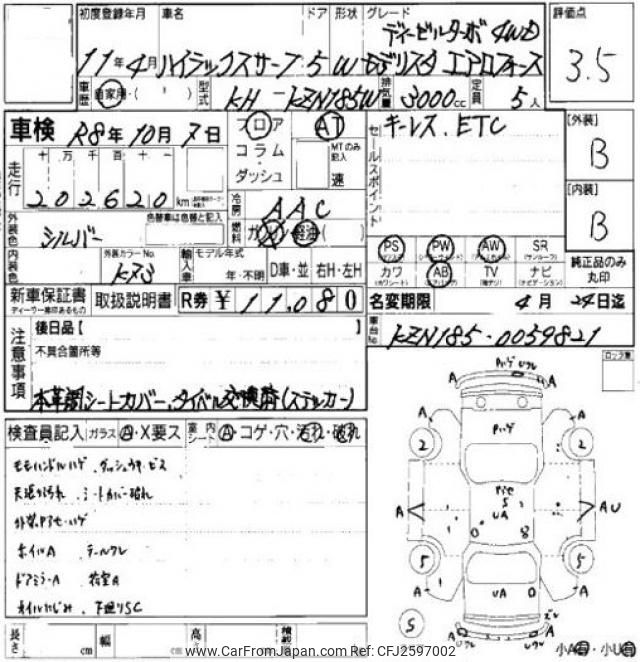 初度登録年月 車名 ドア 形状 グレード 評価点
ディーゼルターボ 4WD
11年4月 ハイラックスサーフ 5 W モデリスタ エアロフォース 3.5
車歴 自家用・( ) 型式 KH - KZN185W 排気量 3000cc 定員 5人
車検 R8年10月7日 フロア AT キーレス、ETC [外装]
コラム・ MTのみ記入 B
走行 十 万 千 百 十 ダッシュ 速 セールスポイント
202620 km [内装]
外装色 色替車は色替と記入 冷房 AAC B
シルバー 燃料 ガソリン 軽油 ( )
PS PW AW SR
内装色 外装カラーNo. 輸入車 モデル年式 (サンルーフ) 純正品のみ丸印
KR3 年・不明 D車・並 右H・左H カワ AB TV ナビ
(ナビゲーション)
新車保証書 取扱説明書 R券 ¥11,080 名変期限 4月24日迄
ディーラー捺印あるもの
車台No. KZN185-0059821
注意事項 後日品【 】
不具合箇所等
本革調シートカバー、タイベル交換済(ステッカー)
検査員記入 ガラス A・X要ス 室内シート A・コゲ・穴・汚れ・破れ
モモハンドルハゲ、ダッシュウキ・ビス
天張り汚れ、シートカバー破れ
外装Pアセ・ハゲ
ホイルA、テールワレ
ドアミラーA、荷室A
オイルにじみ、下廻りSC
長さ cm 幅 cm 高さ
Pハゲ Uワレ
A A
A A
2 2
Pハゲ
Pアセ
S
A UA A U
0 8
5 5
UA 0
S
A A
小A 小U
www.CarFromJapan.com Ref Number: CFJ2597002